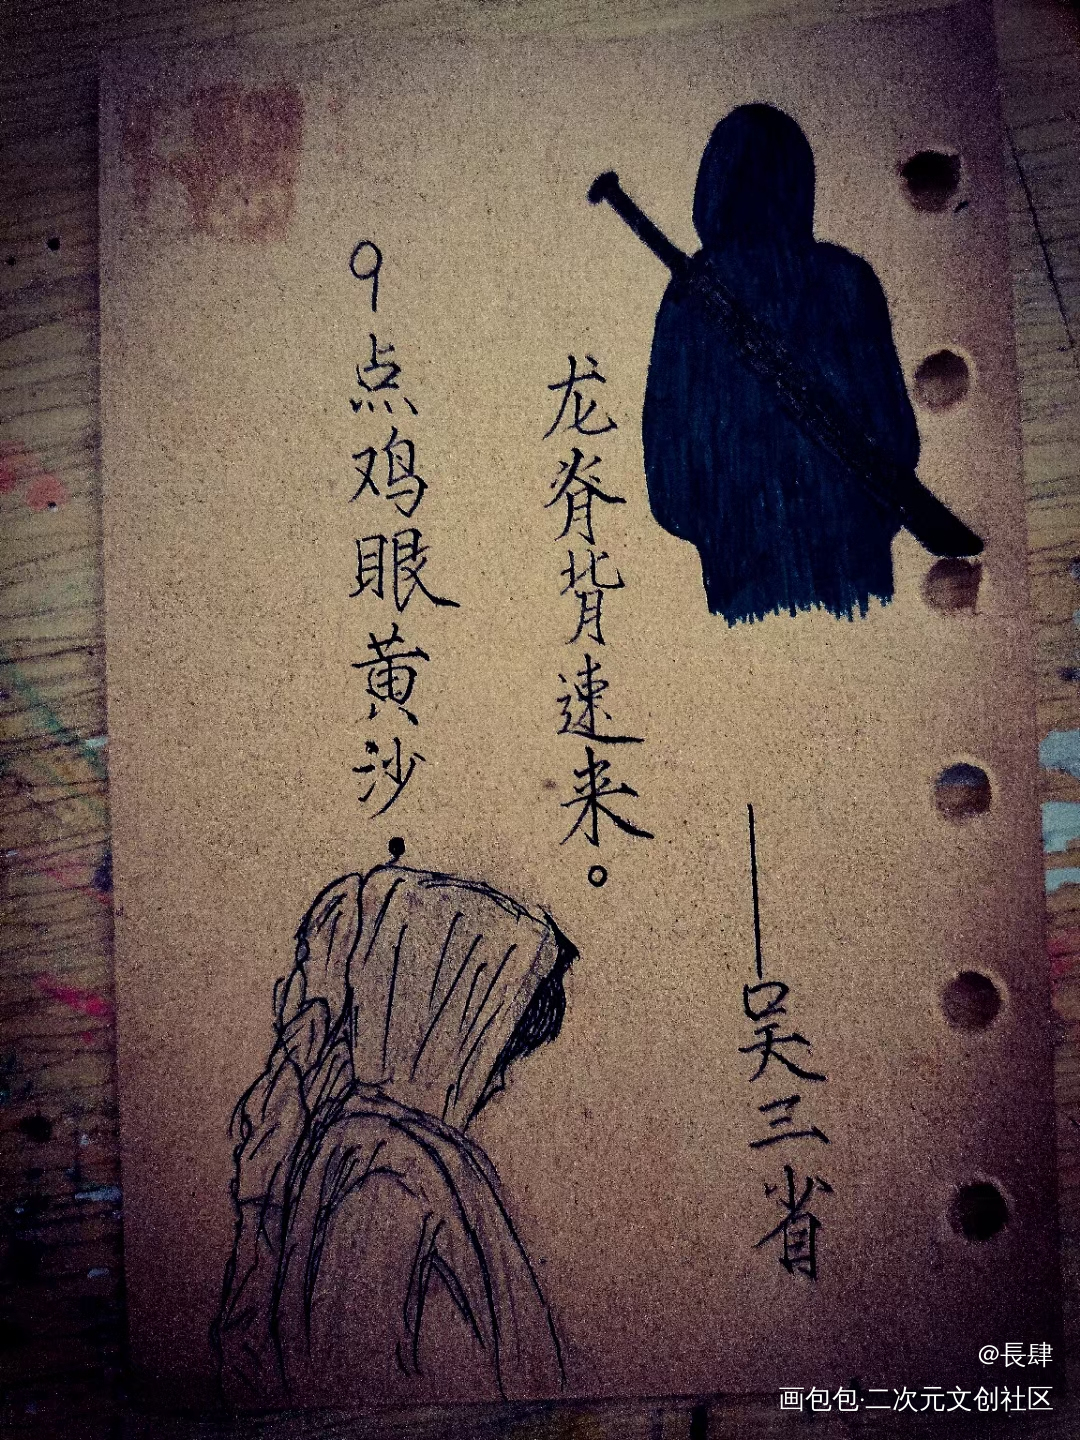 9点鸡眼黄沙，
龙脊背速来。
——吴三省
@長肆
画包包·二次元文创社区